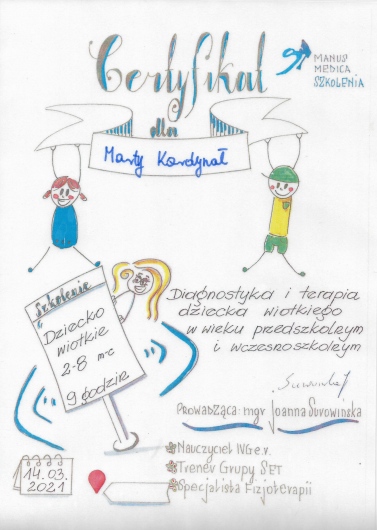 Certyfikat
MANUS
MEDICA
SZKOLENIA
dla
Marty Kardynał
Szkolenie
Dziecko
wiotkie
2-8 m-c
9 godzin
Diagnostyka i terapia
dziecka wiotkiego
w wieku przedszkolnym
i wczesnoszkolnym
Prowadząca: mgr Joanna Surowińska
Nauczyciel IVG e.v.
Trener Grupy SET
Specjalista Fizjoterapii
14.03.
2021